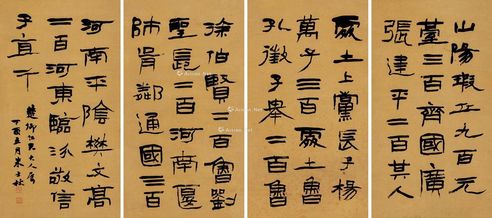 山陽瑕丘九百元
臺三百齊國廣
張建平二百其人
處士上黨長子楊
萬子三百處士魯
孔徵子舉二百魯
徐伯賢三百魯劉
聖長二百河南偃
師胥鄰通國三百
河南平陰樊文高
二百河東臨汾敬信
子直千
仁兄大人屬
丁酉五月